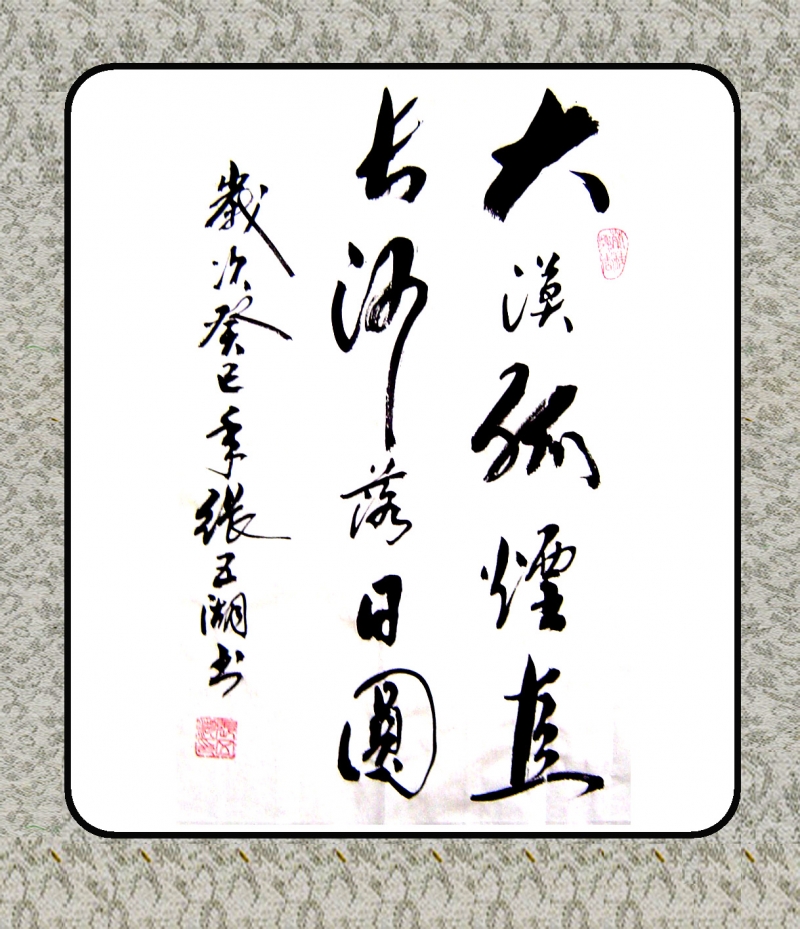 大漠孤煙直
长河落日圓
歲次癸巳年張五湖书